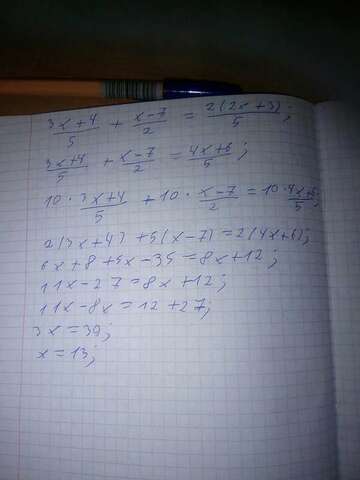 (3x+4)/5 + (x-7)/2 = 2(2x+3)/5;
(3x+4)/5 + (x-7)/2 = (4x+6)/5;
10 · (3x+4)/5 + 10 · (x-7)/2 = 10 · (4x+6)/5;
2(3x+4) + 5(x-7) = 2(4x+6);
6x+8+5x-35=8x+12;
11x-27=8x+12;
11x-8x=12+27;
3x=39;
x=13;